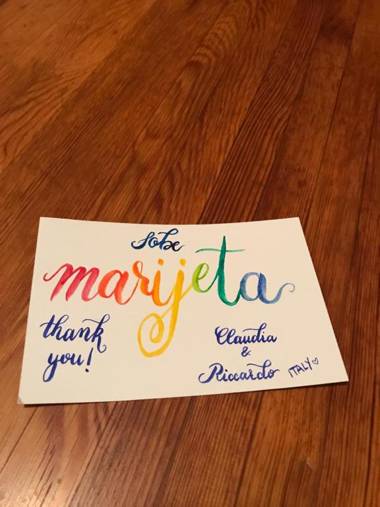 sobe
marijeta
thank you!
Claudia
&
Riccardo ITALY